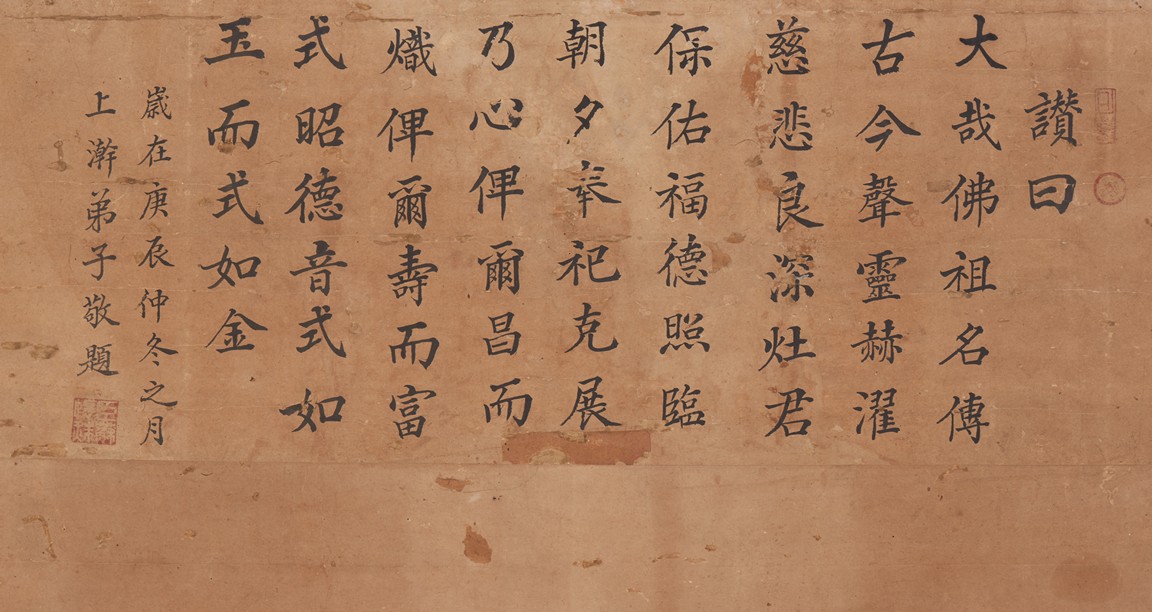 讃曰
大哉佛祖名傳
古今聲靈赫濯
慈悲良深灶君
保佑福德照臨
朝夕奉祀克展
乃心俾爾昌而
熾俾爾壽而富
式昭德音式如
玉而式如金
歲在庚辰仲冬之月
上澣弟子敬題